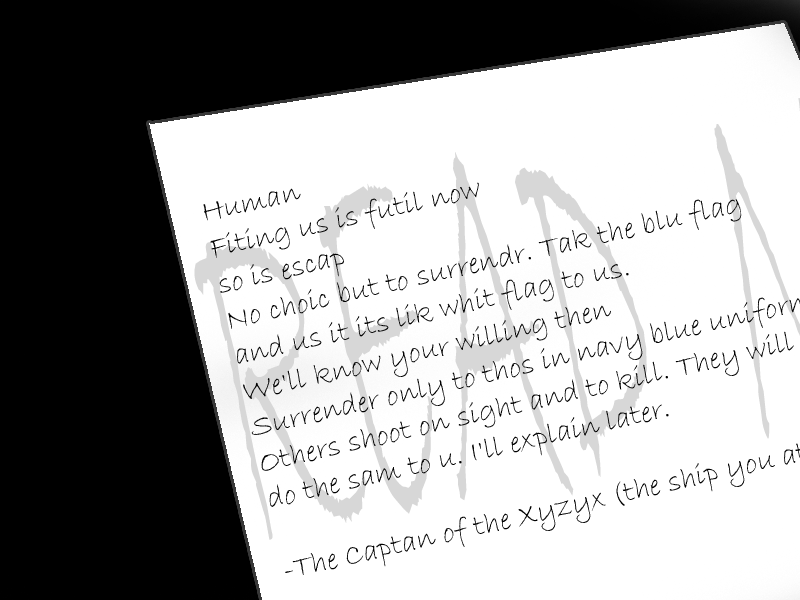 Human
Fiting us is futil now
so is escap
No choic but to surrendr. Tak the blu flag
and us it its lik whit flag to us.
We'll know your willing then
Surrender only to thos in navy blue uniform
Others shoot on sight and to kill. They will
do the sam to u. I'll explain later.
-The Captan of the Xyzyx (the ship you at
READ